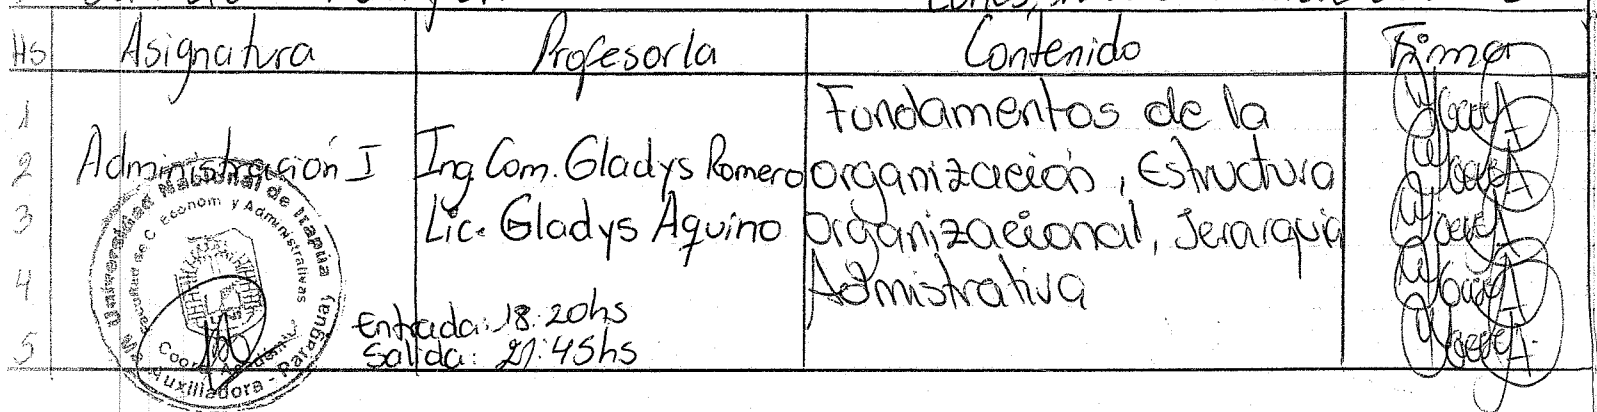 Lunes,
Hs Asignatura Profesor/a Contenido Firma
1 Fundamentos de la
2 Administración I Ing. Com. Gladys Romero organización, Estructura
3 Lic. Gladys Aquino organizacional, Jerarquia
4 Admistrativa
Entrada: 18:20hs
5 Salida: 21:45hs
Universidad Nacional de Itapúa
Facultad de C. Econom y Administrativas
Ma Auxiliadora - Paraguay